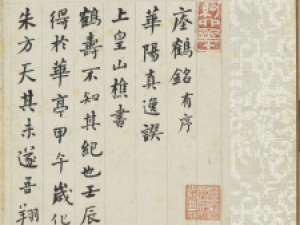 瘞鶴銘有序
華陽真逸譔
上皇山樵書
鶴壽不知其紀也壬辰歲
得於華亭甲午歲化
朱方天其未遂吾翔